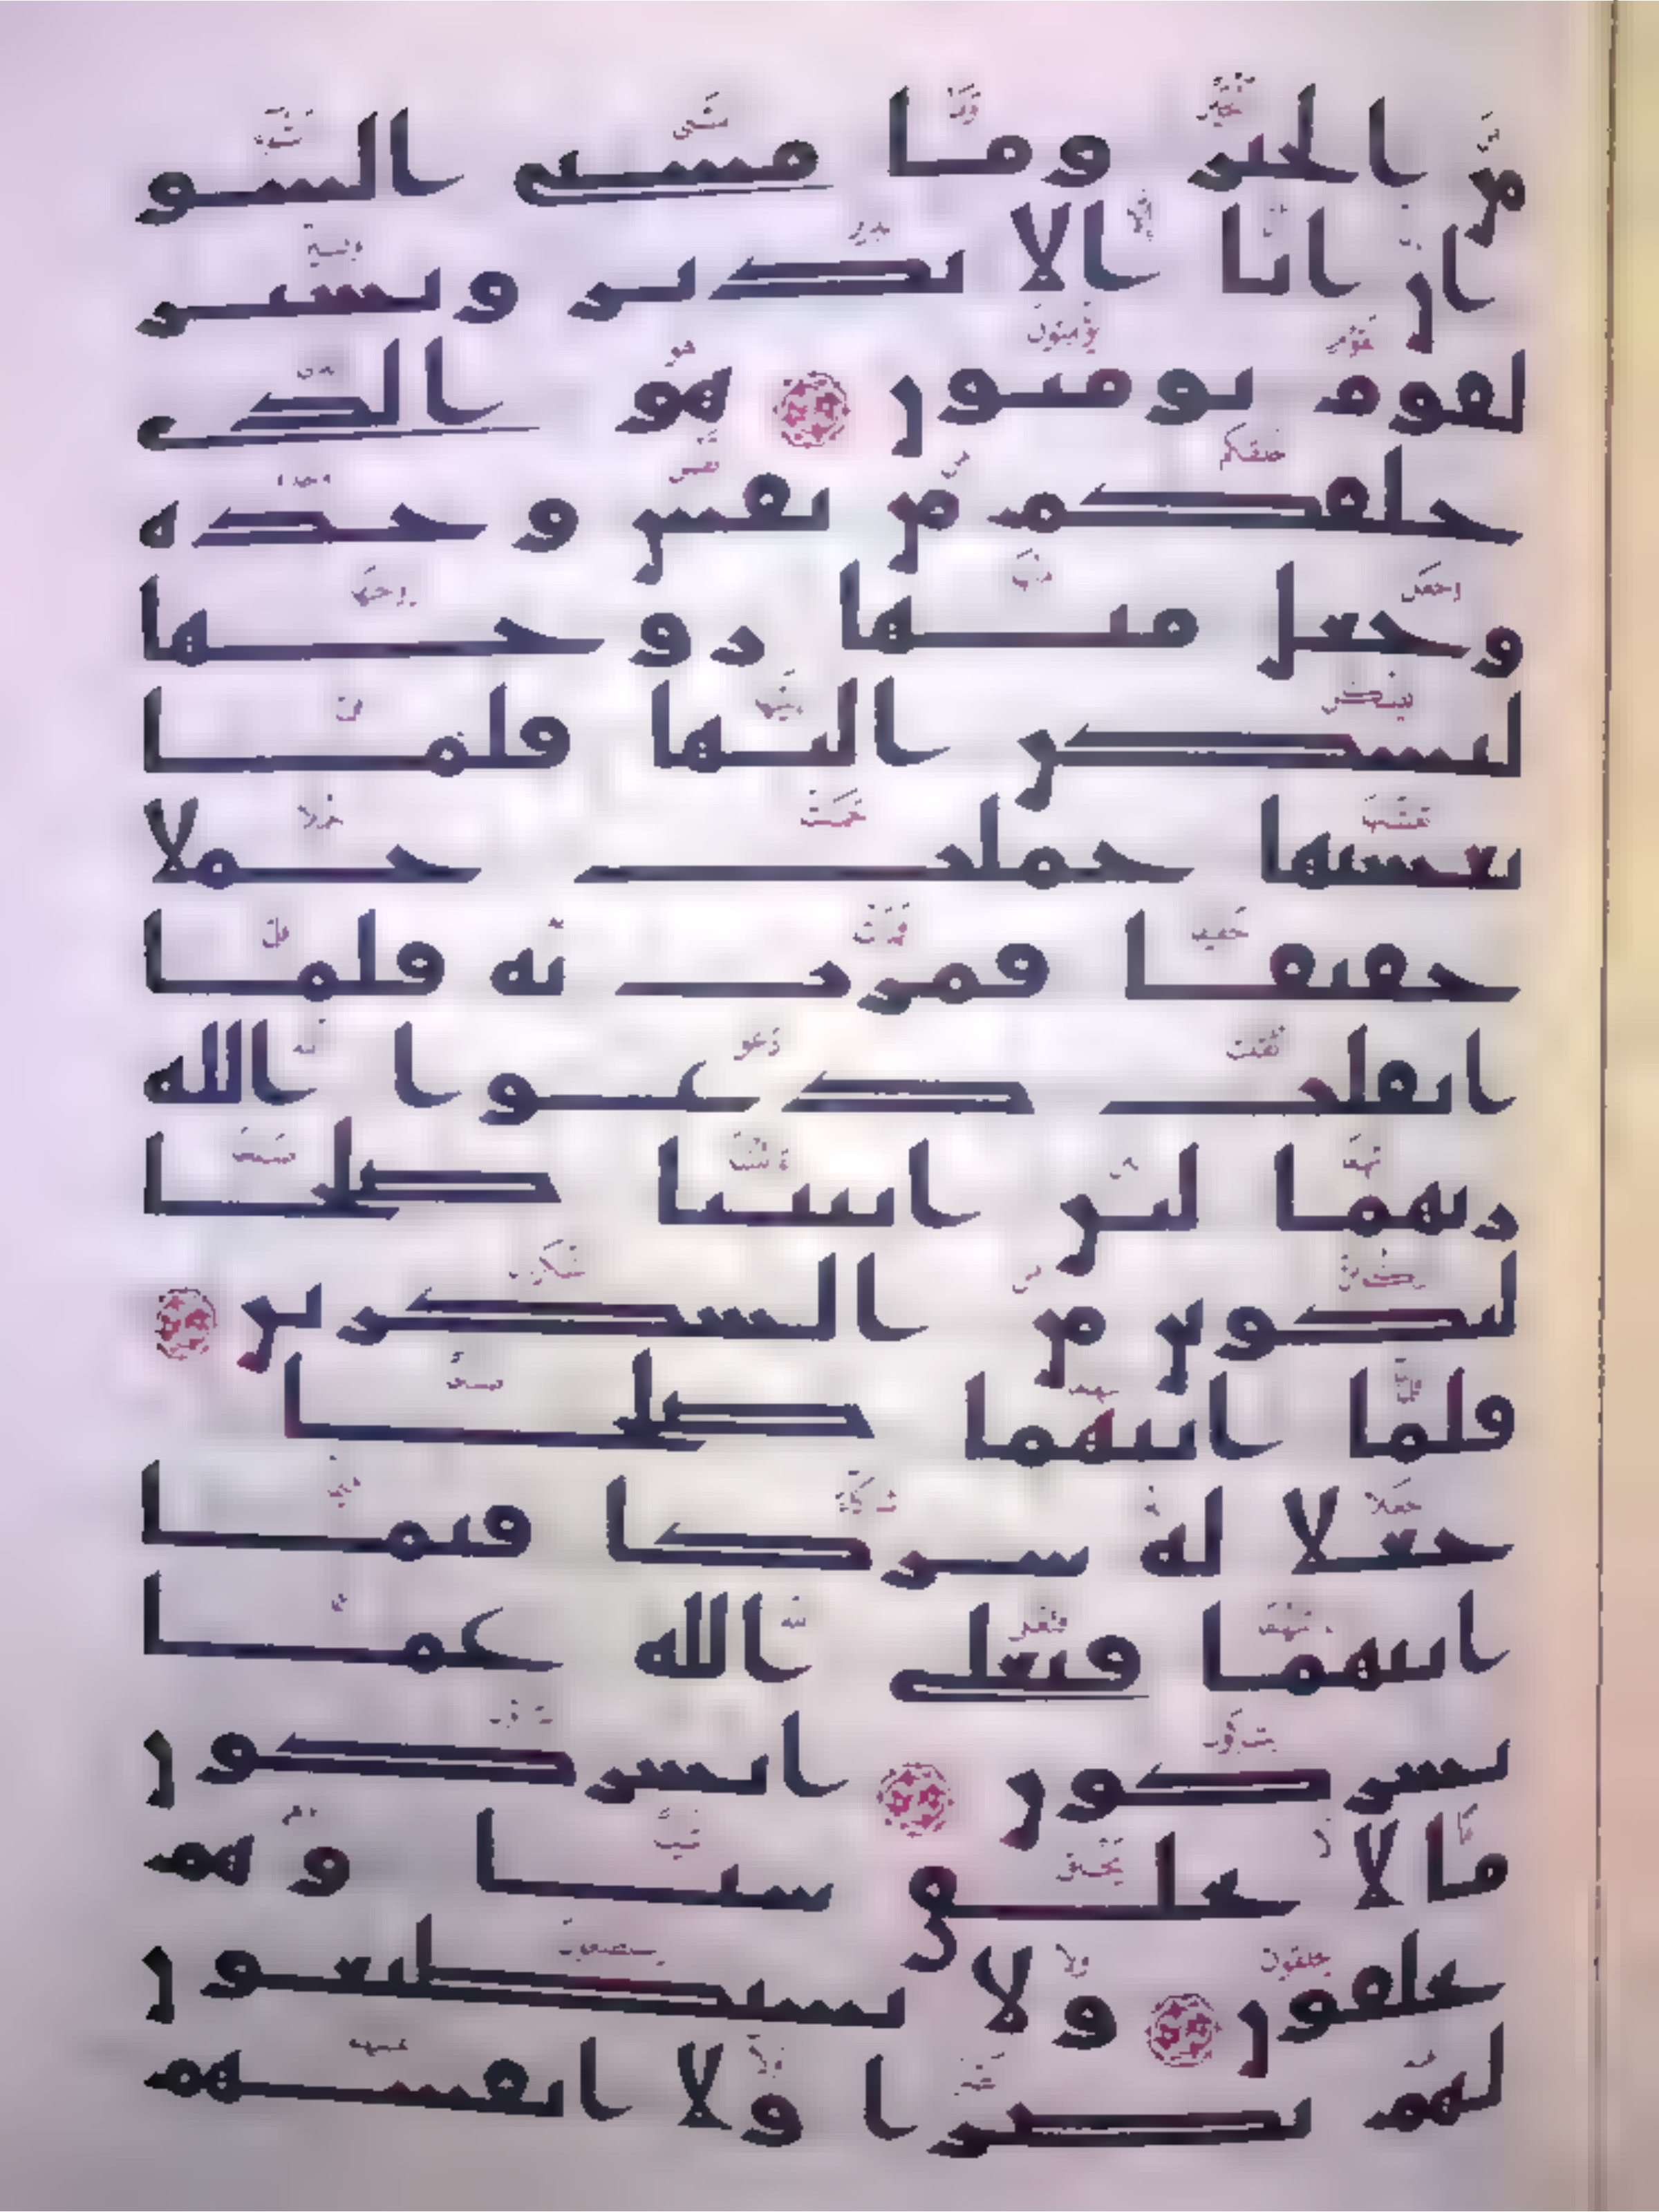 من الخير وما مسنى السو
ان انا الا نذير وبشير
لقوم يومنون هو الذى
خلقكم من نفس وحده
وجعل منها زوجها
ليسكن اليها فلما
تغشيها حملت حملا
خفيفا فمرت به فلما
اثقلت دعوا الله
ربهما لين اتيتنا صلحا
لنكونن من الشكرين
فلما اتيهما صلحا
جعلا له شركا فيما
اتيهما فتعلى الله عما
يشركون ايشركون
ما لا يخلق شيا وهم
يخلقون ولا يستطيعون
لهم نصرا ولا انفسهم